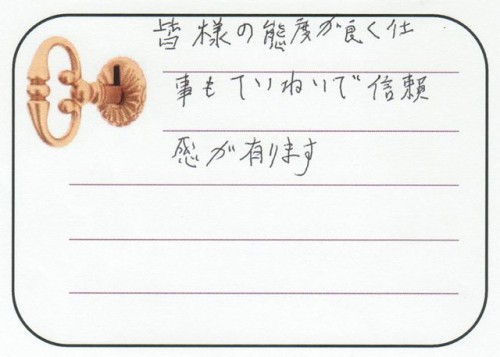 皆様の態度が良く仕
事もていねいで信頼
感が有ります